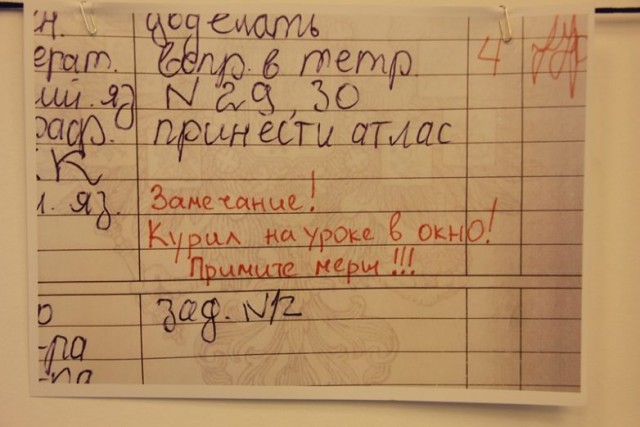 н. доделать
ерат. вопр. в тетр. 4
ий. яз N 29, 30
граф. принести атлас
.К
. яз.
Замечание!
Курил на уроке в окно!
Примите меры!!!
о зад. N 12
-ра
-ра